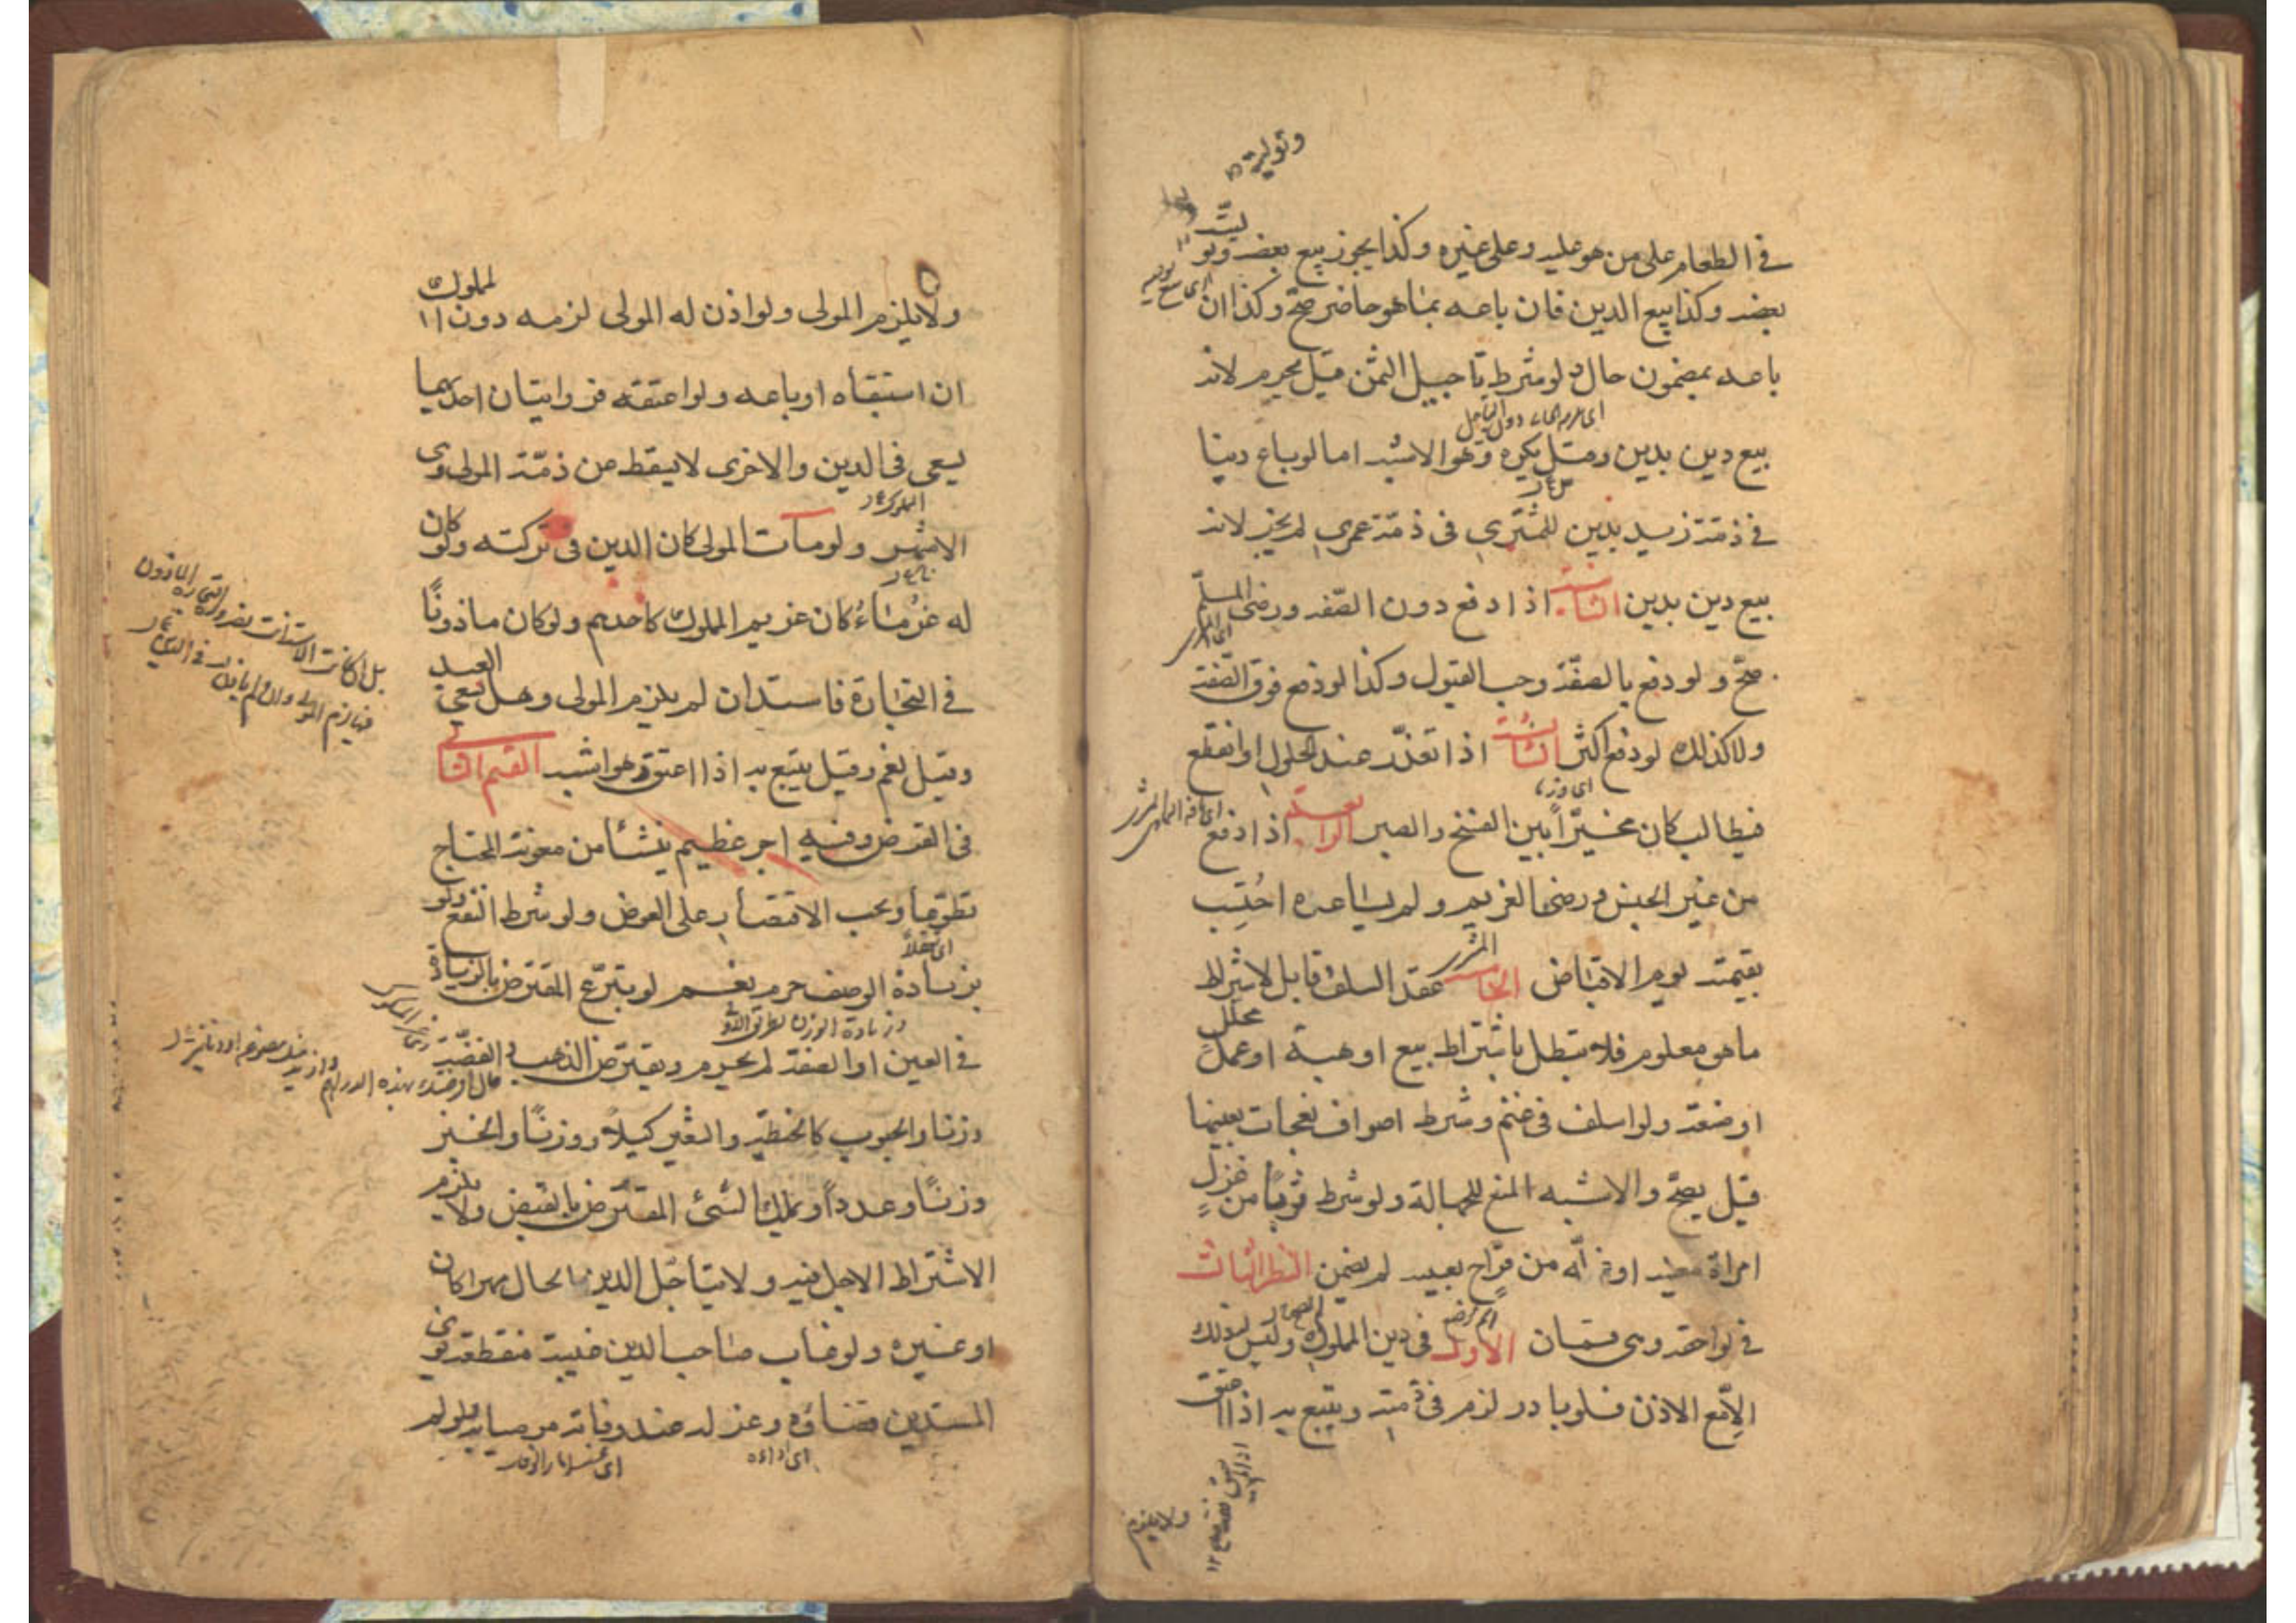 وتولية
في الطعام على من هو عليه وعلى غيره وكذا يجوز بيع بعضه وتوليت
بعضه وكذا بيع الدين فان باعه بما هو حاضر صح وكذا ان
باعه بمضمون حال ولو شرط تاجيل الثمن قيل يحرم لانه
بيع دين بدين وقيل يكره وهو الاشبه اما لو باع دينا
في ذمة زيد بدين للمشتري في ذمة عمرو لم يجز لانه
بيع دين بدين الثانية اذا دفع دون الصفة ورضى المسلم
صح ولو دفع بالصفة وجب القبول وكذا لو دفع فوق الصفة
ولا كذلك لو دفع اكثر الثالثة اذا تعذر عند الحلول او انقطع
فطالب كان مخيرًا بين الفسخ والصبر الرابعة اذا دفع
من غير الجنس ورضى الغريم ولم يساعره احتُسِب
بقيمته يوم الاقباض الخامسة عقد السلف قابل لاشتراط
ما هو معلوم فلا تبطل باشتراط بيع او هبة او عمل محلل
او صنعة ولو اسلف في غنم وشرط اصواف نعجات بعينها
قيل يصح والاشبه المنع للجهالة ولو شرط ثوبًا من غزل
امراة معينة او غلة من قراح بعينه لم يضمن النظر الثالث
في لواحقه وهى قسمان الاول في دين المملوك وليس له ذلك
الا مع الاذن فلو بادر لزم في ذمته ويتبع به اذا اعتق
ولا يلزم
ولا يلزم المولى ولو اذن له المولى لزمه دون المملوك
ان استبقاه او باعه ولو اعتقه فروايتان احديهما
يسعى في الدين والاخرى لا يسقط عن ذمّة المولى وهى
المملوك
الاشهر ولو مات المولى كان الدين في تركته ولو كان
له غرماءُ كان غريم المملوك كاحدهم ولو كان ماذونًا
في التجارة فاستدان لم يلزم المولى وهل يسعى العبد
وقيل نعم وقيل يتبع به اذا اعتق وهو اشبه القسم الثانى
في القرض وفيه اجر عظيم ينشأ من معونة المحتاج
تطوعا ويجب الاقتصار على العوض ولو شرط النفع ولو
بزيادة الوصف حرم نعم لو تبرّع المقترض بالزيادة
في العين او الصفة لم يحرم ويقترض الذهب والفضّة
وزنا والحبوب كالحنطة والشعير كيلا ووزنًا والخبز
وزنًا وعددًا ويملك الشئ المقترض بالقبض ولا يلزم
الاشتراط الاجل فيه ولا يتاجّل الدين الحال مهرا كان
او غيره ولو غاب صاحب الدين غيبة منقطعة نوى
المستدين قضاءه وعزله عند وفاته موصيا به ولو لم
اى اداءه